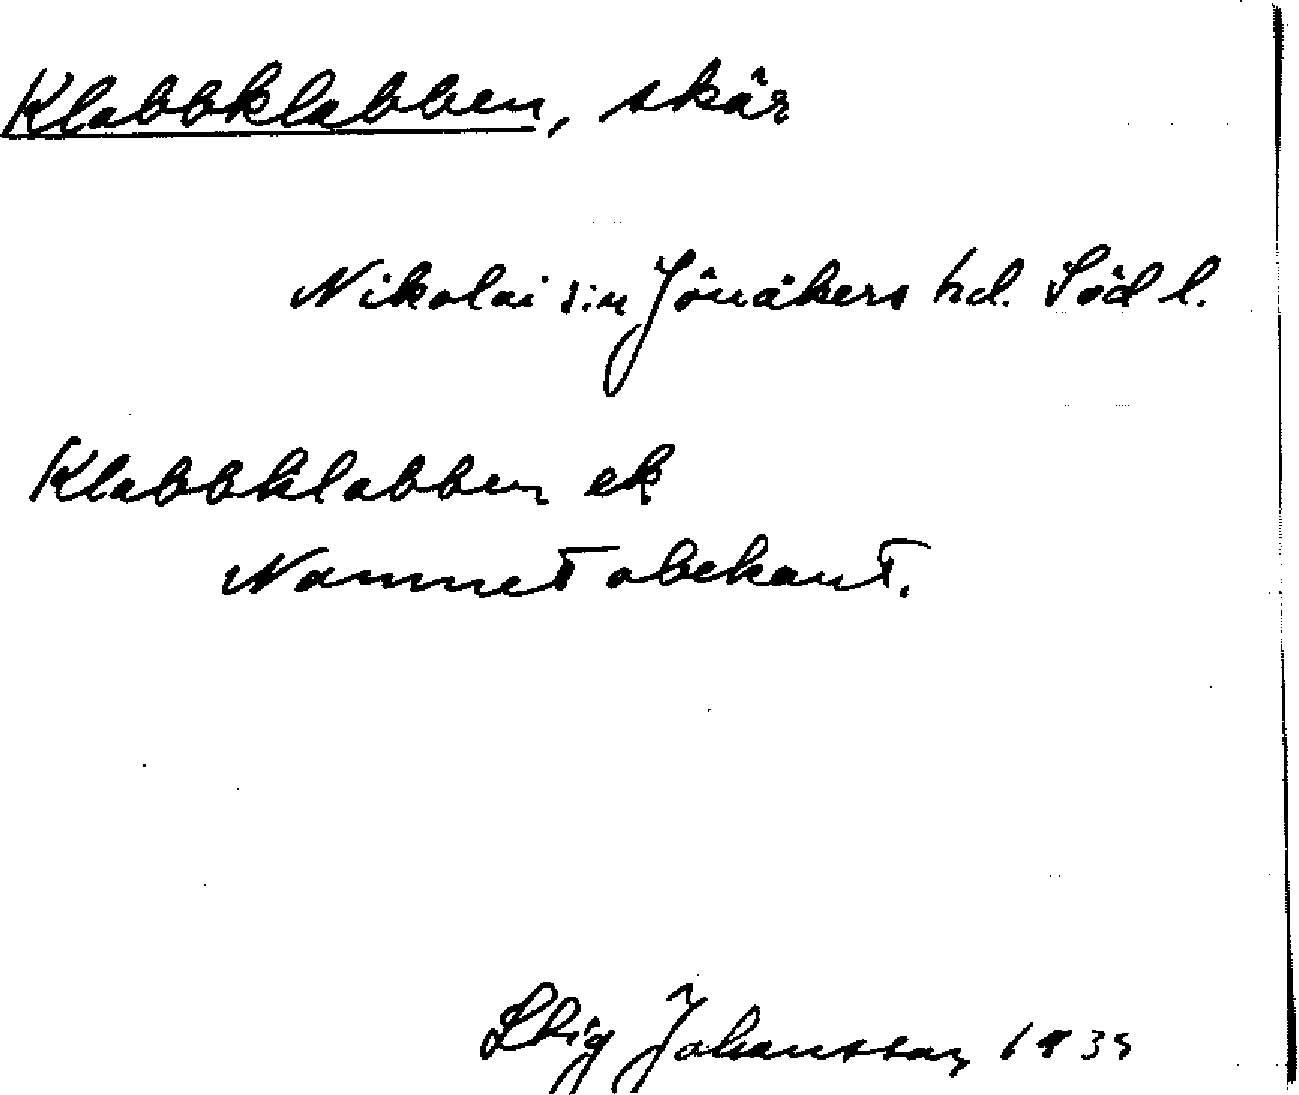 Klabbklabben, skär
Nikolai s:n Jönåkers hd. Södl.
Klabbklabben ek
Namnet obekant.
Stig Johansson 1935